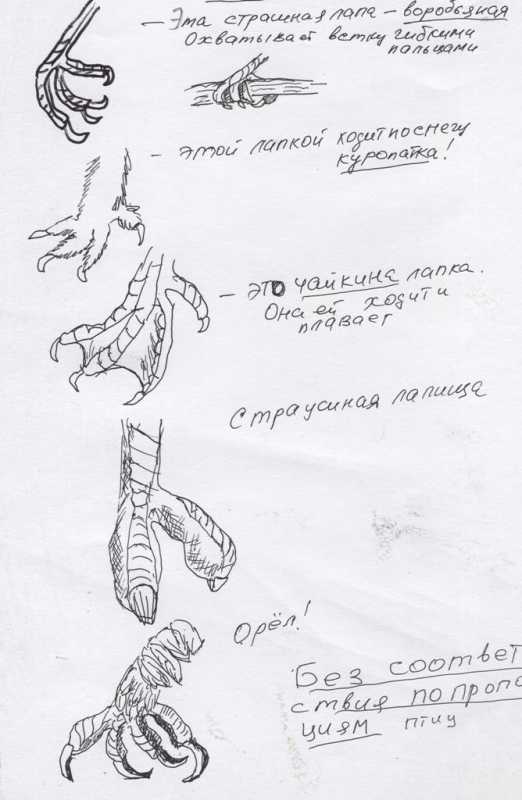 — Эта страшная лапа — воробьяная
Охватывает ветку гибкими
пальцами
— этой лапкой ходит по снегу
куропатка!
— это чайкина лапка.
Она ей ходит и
плавает
Страусиная лапища
Орёл!
Без соответ
ствия по пропо
циям птиц